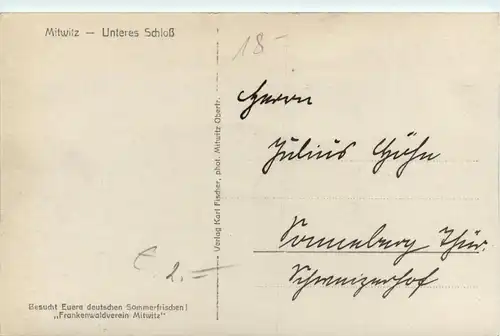 Mitwitz — Unteres Schloß
18.-
Herrn
Julius Höhn
Sonneberg Thür.
Schweizerhof
Verlag Karl Fischer, phot. Mitwitz Oberfr.
2.-
Besucht Euere deutschen Sommerfrischen!
„Frankenwaldverein Mitwitz"